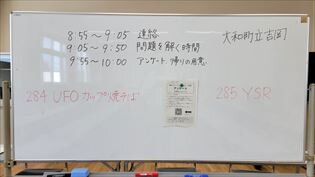 8:55～9:05 連絡
9:05～9:50 問題を解く時間
9:55～10:00 アンケート 帰りの用意
大和町立吉岡
284 UFO カップ焼そば
285 YSR
アンケート